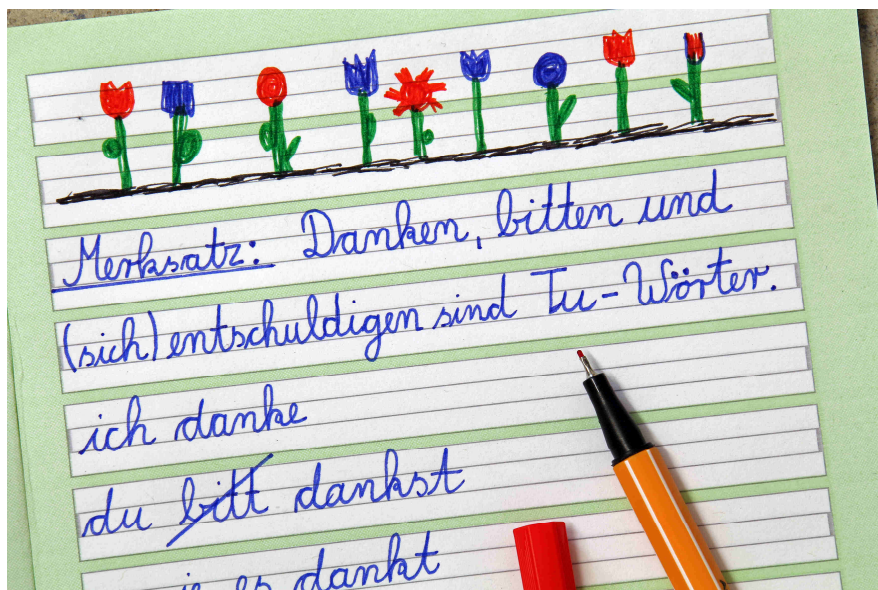 Merksatz: Danken, bitten und
(sich) entschuldigen sind Tu-Wörter.
ich danke
du bitt dankst
es dankt